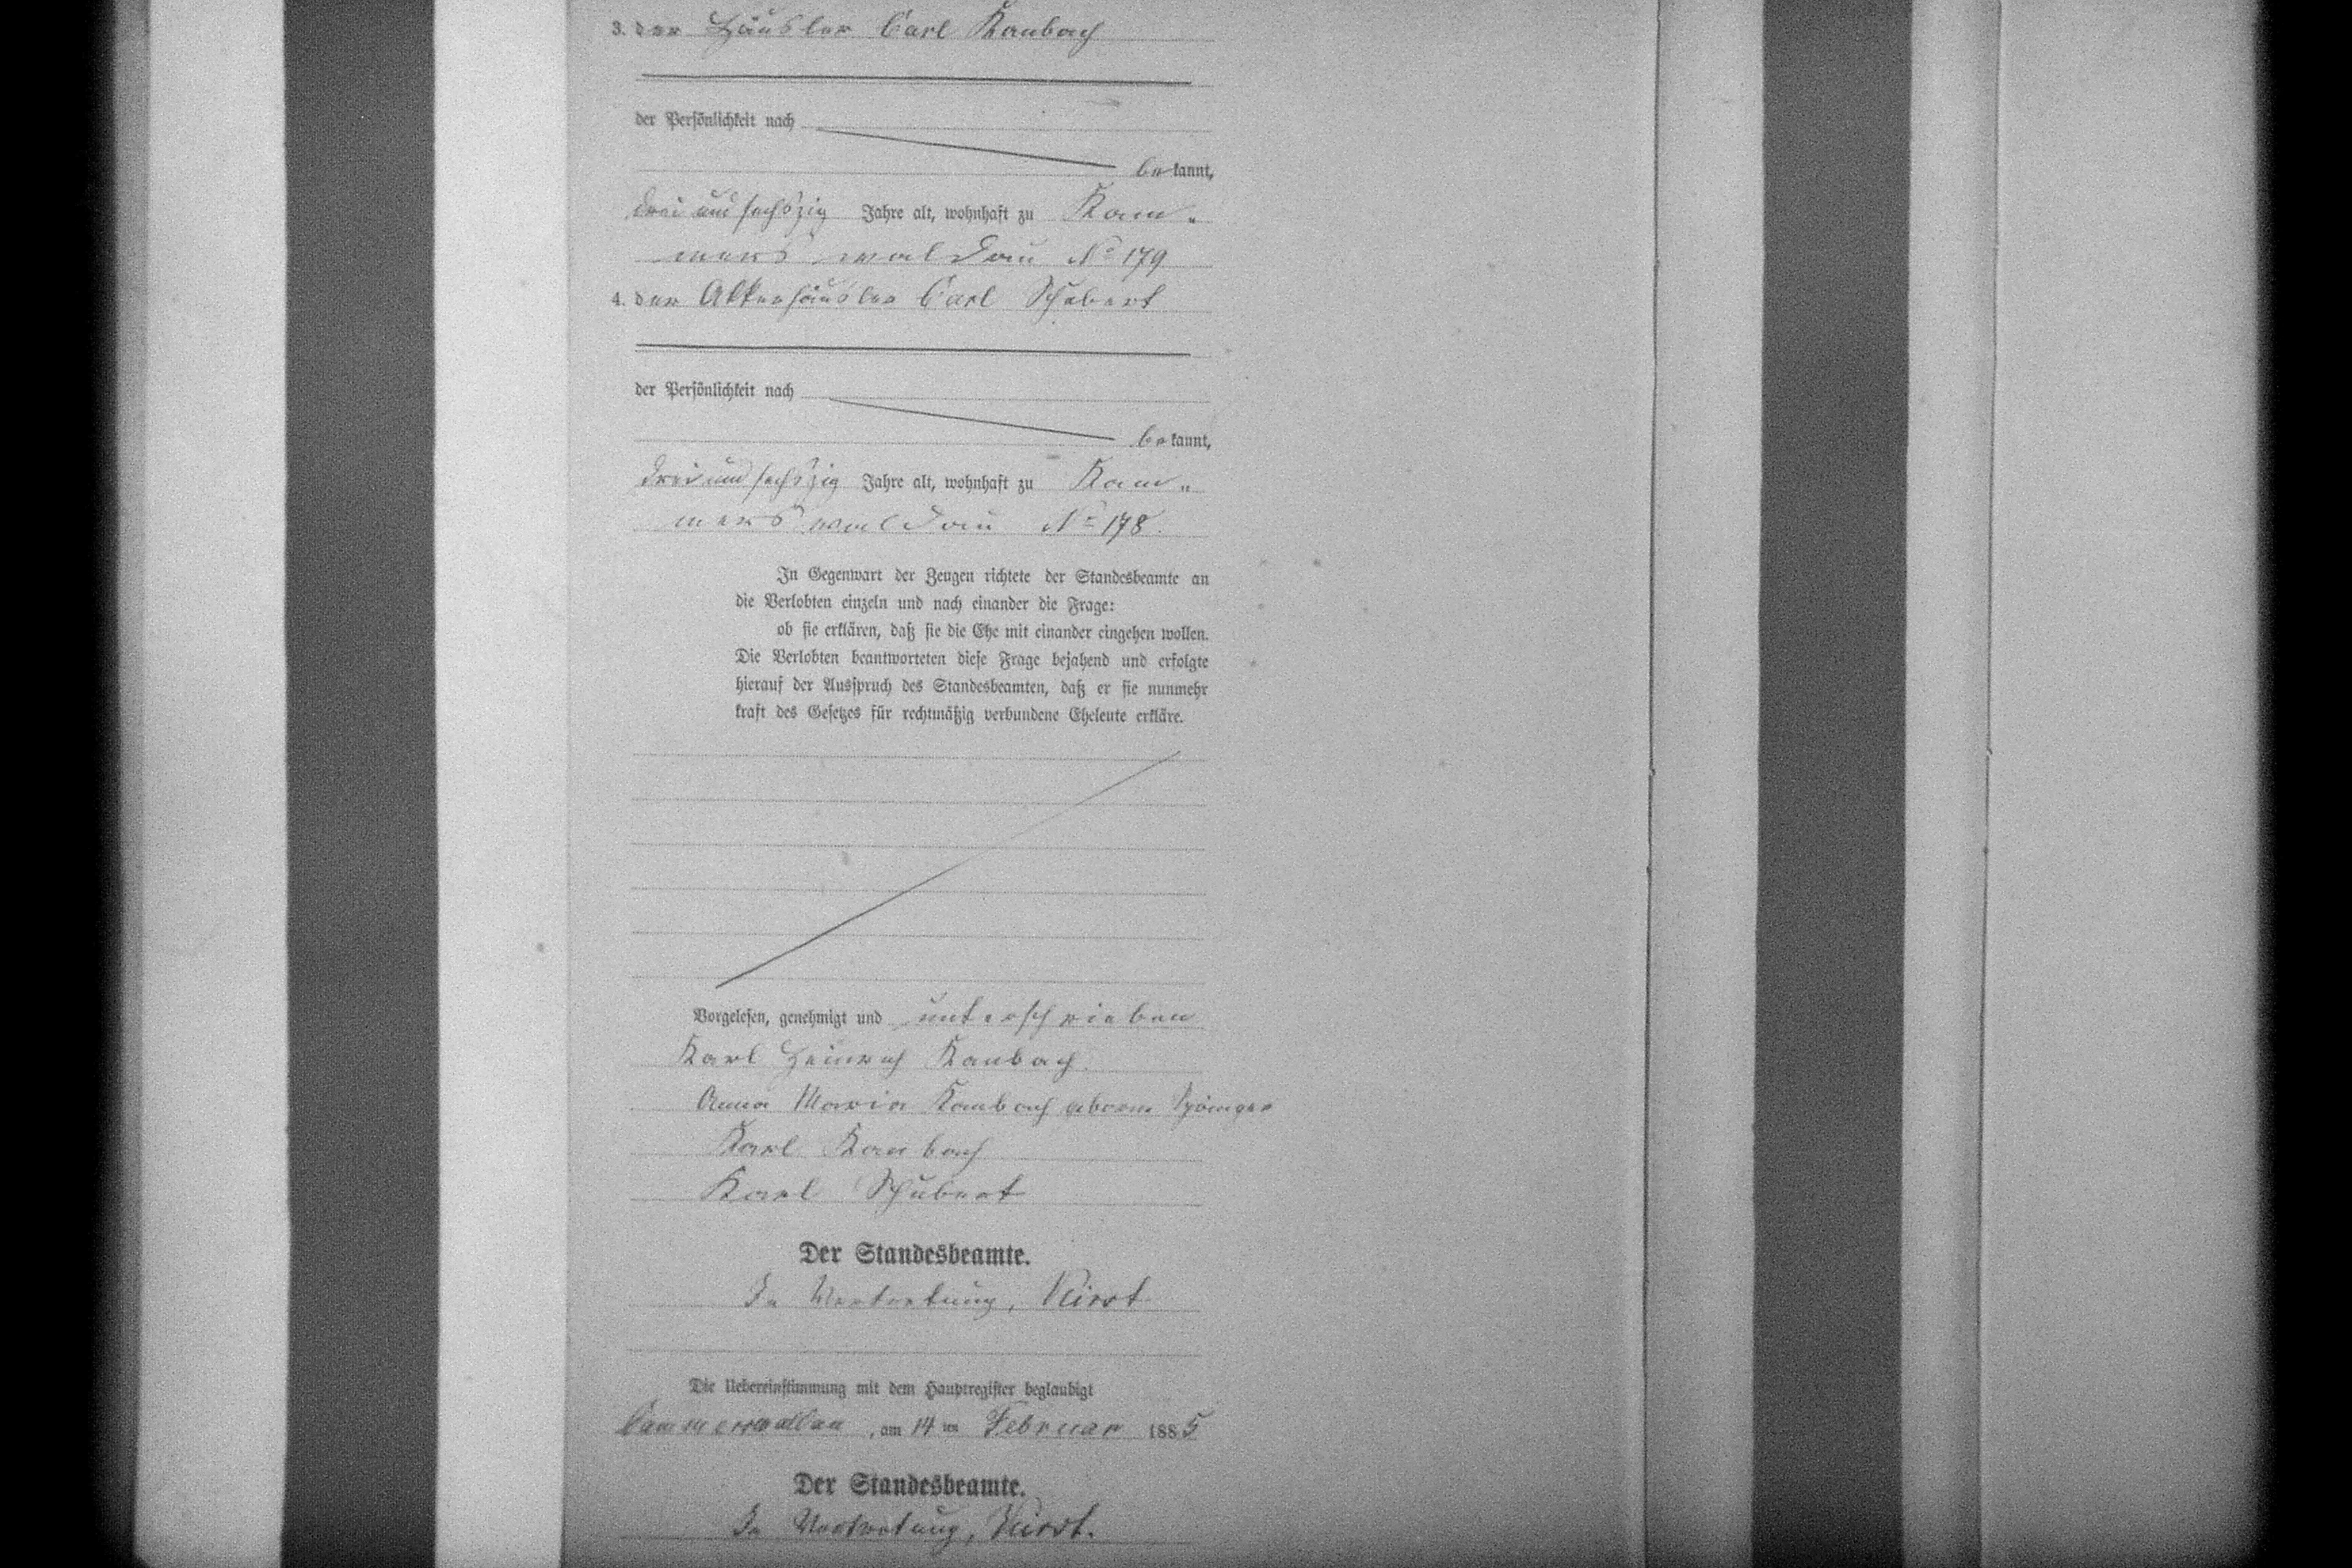 3. der Häusler Carl Kaubach
der Persönlichkeit nach
bekannt,
drei und sechszig Jahre alt, wohnhaft zu Kam-
merswaldau No 179
4. der Ackerhäusler Carl Schubert
der Persönlichkeit nach
bekannt,
drei und sechszig Jahre alt, wohnhaft zu Kam-
merswaldau No 178.
In Gegenwart der Zeugen richtete der Standesbeamte an
die Verlobten einzeln und nach einander die Frage:
ob sie erklären, daß sie die Ehe mit einander eingehen wollen.
Die Verlobten beantworteten diese Frage bejahend und erfolgte
hierauf der Ausspruch des Standesbeamten, daß er sie nunmehr
kraft des Gesetzes für rechtmäßig verbundene Eheleute erkläre.
Vorgelesen, genehmigt und unterschrieben
Karl Heinrich Kaubach
Anna Maria Kaubach
Karl Kaubach
Karl Schubert
Der Standesbeamte.
In Vertretung,
Die Uebereinstimmung mit dem Hauptregister beglaubigt
Cammerswaldau, am 14ten Februar 1885
Der Standesbeamte.
In Vertretung,